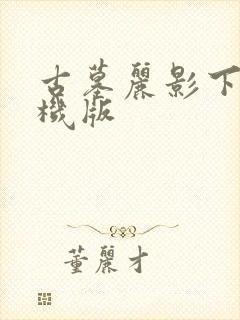 古墓麗影下
機版
董麗才